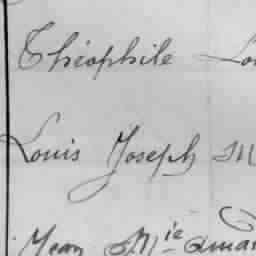 Théophile Lou
Louis Joseph M
Jean Mie Aman